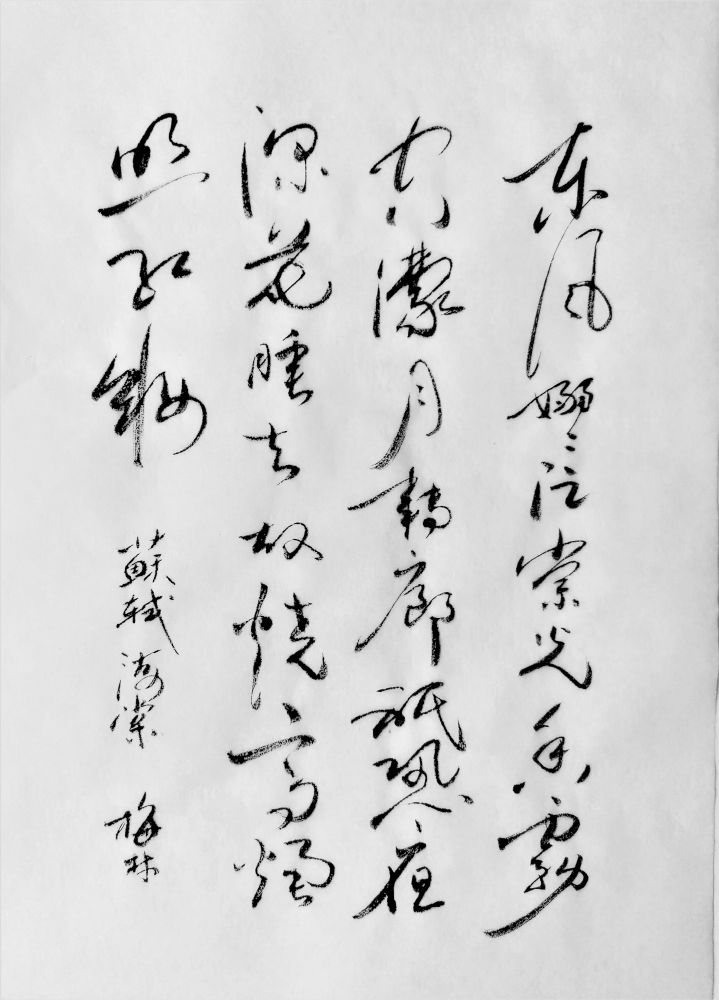 东风嫋〻泛崇光香霧
空濛月轉廊祇恐夜
深花睡去故燒高燭
照紅妝
蘇軾海棠
梅林